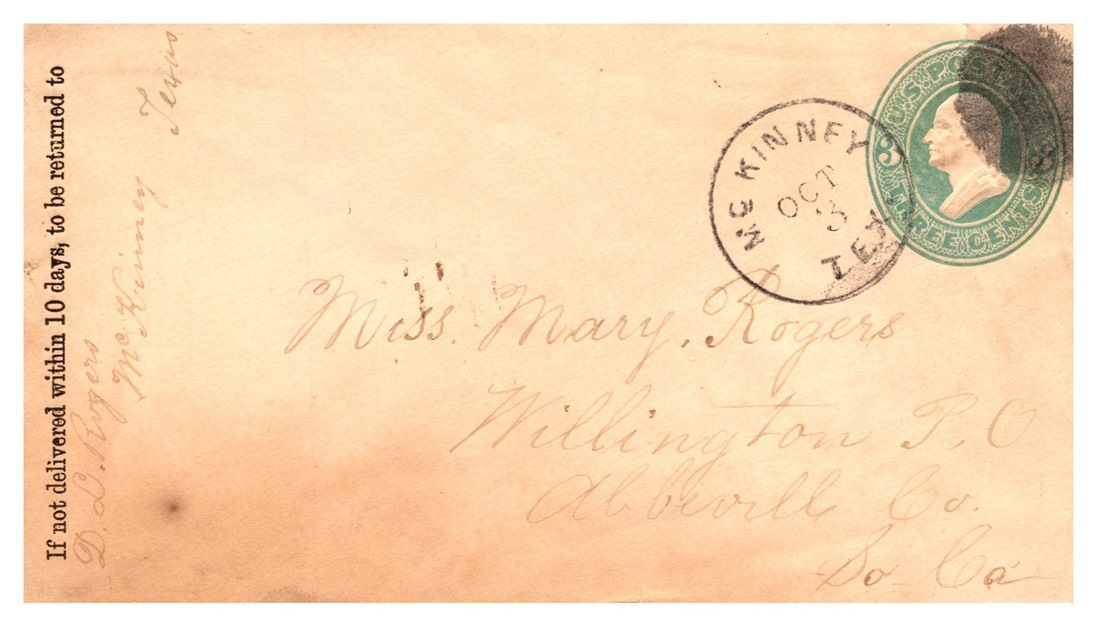 If not delivered within 10 days, to be returned to
D. D. Rogers
McKinney Texas
MC KINNEY
OCT
3
TEX
U.S. POSTAGE
3
THREE CENTS
Miss. Mary. Rogers
Willington P. O
Abbevill Co.
So Ca